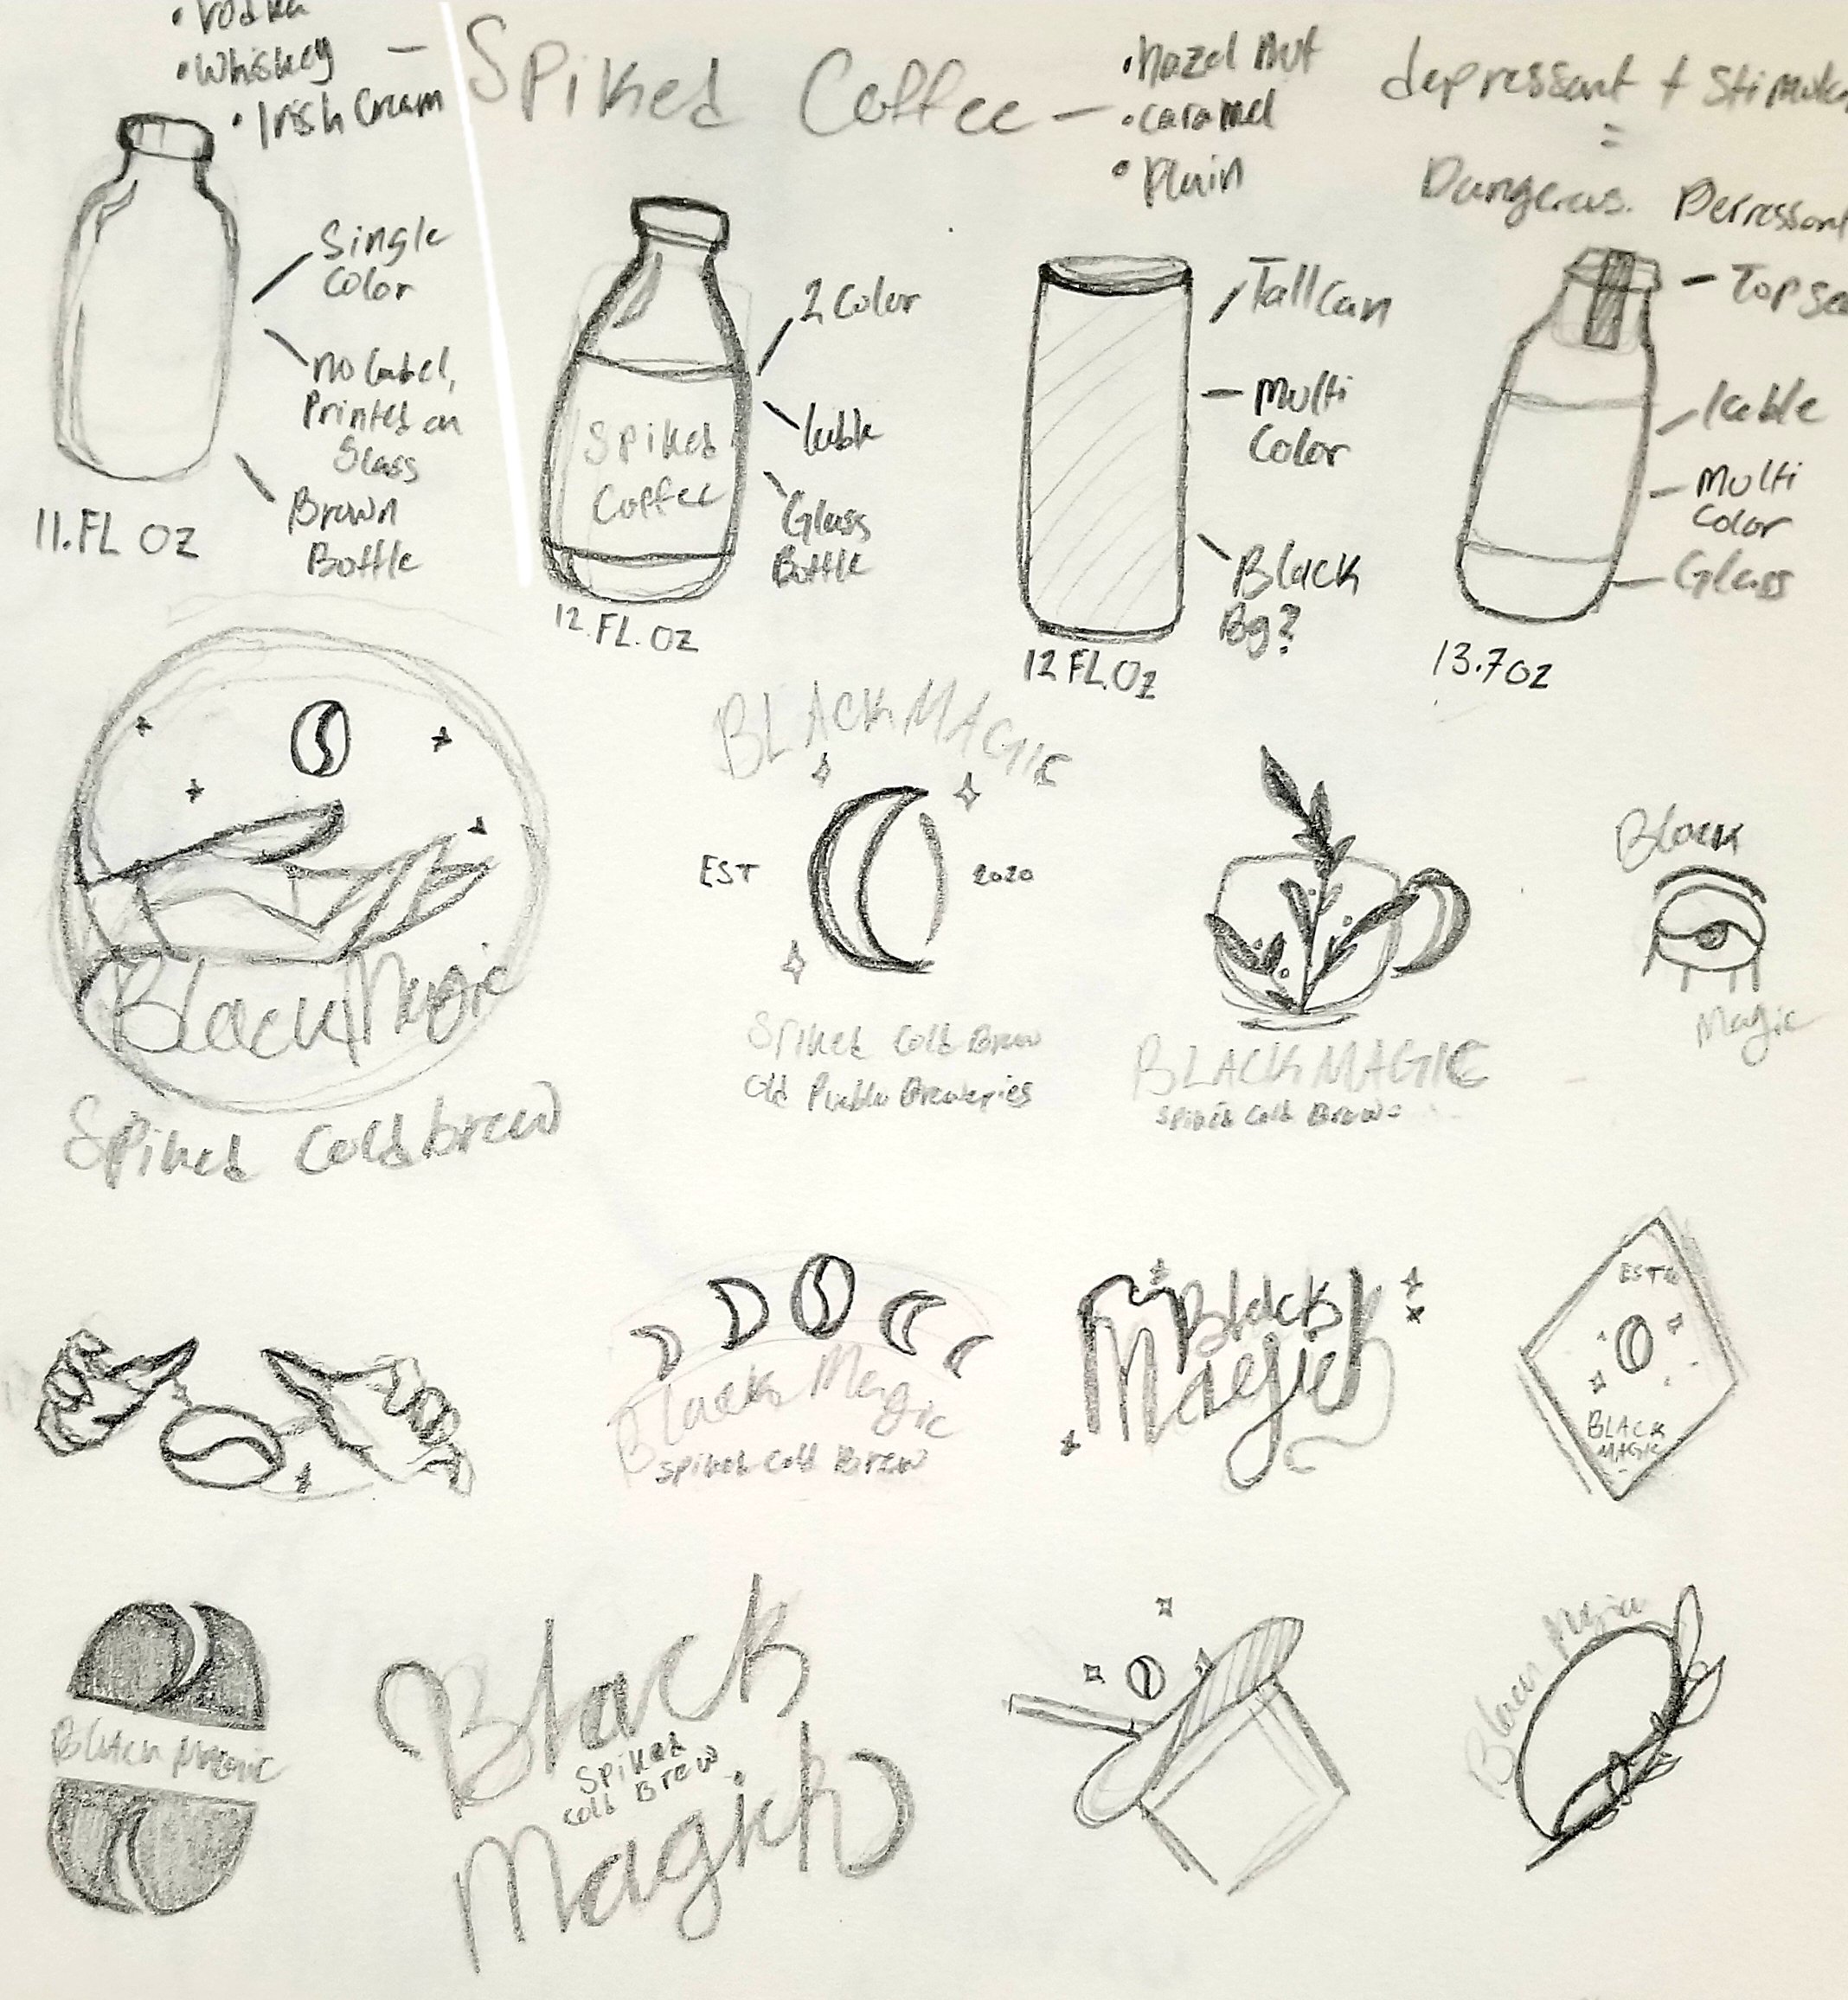 • Vodka
• Whiskey –
• Irish Cream
Spiked Coffee –
• hazel nut
• caramel
• Plain
depressant + Stimula
=
Dangerous.
Single
Color
no label,
Printed on
Glass
Brown
Bottle
11.FL OZ
2 Color
lable
Glass
Bottle
Spiked
Coffee
12.FL.OZ
Tall can
Multi
Color
Black
Bg?
12 FL.OZ
Top se
lable
Multi
Color
Glass
13.7oz
Black Magic
Spiked Cold brew
BLACK MAGIC
EST 2020
Spiked Cold Brew
Old Pueblo Breweries
BLACK MAGIC
Spiked Cold Brew
Black
Magic
Black Magic
Spiked Cold Brew
Black
Magic
EST
BLACK
MAGIC
Black Magic
Black
Spiked
Cold Brew
Magick
Black Magic